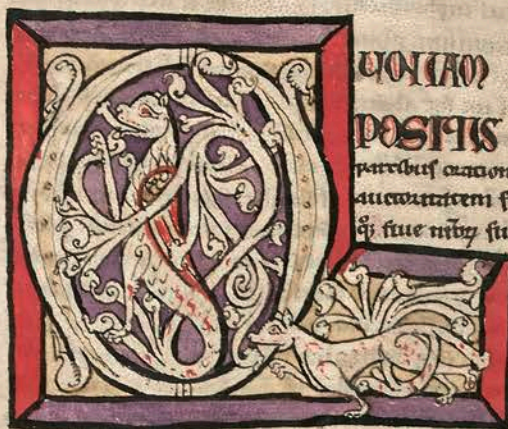 QUONIAM
POSITIS
partibus oration
auctoritatem s
q; siue